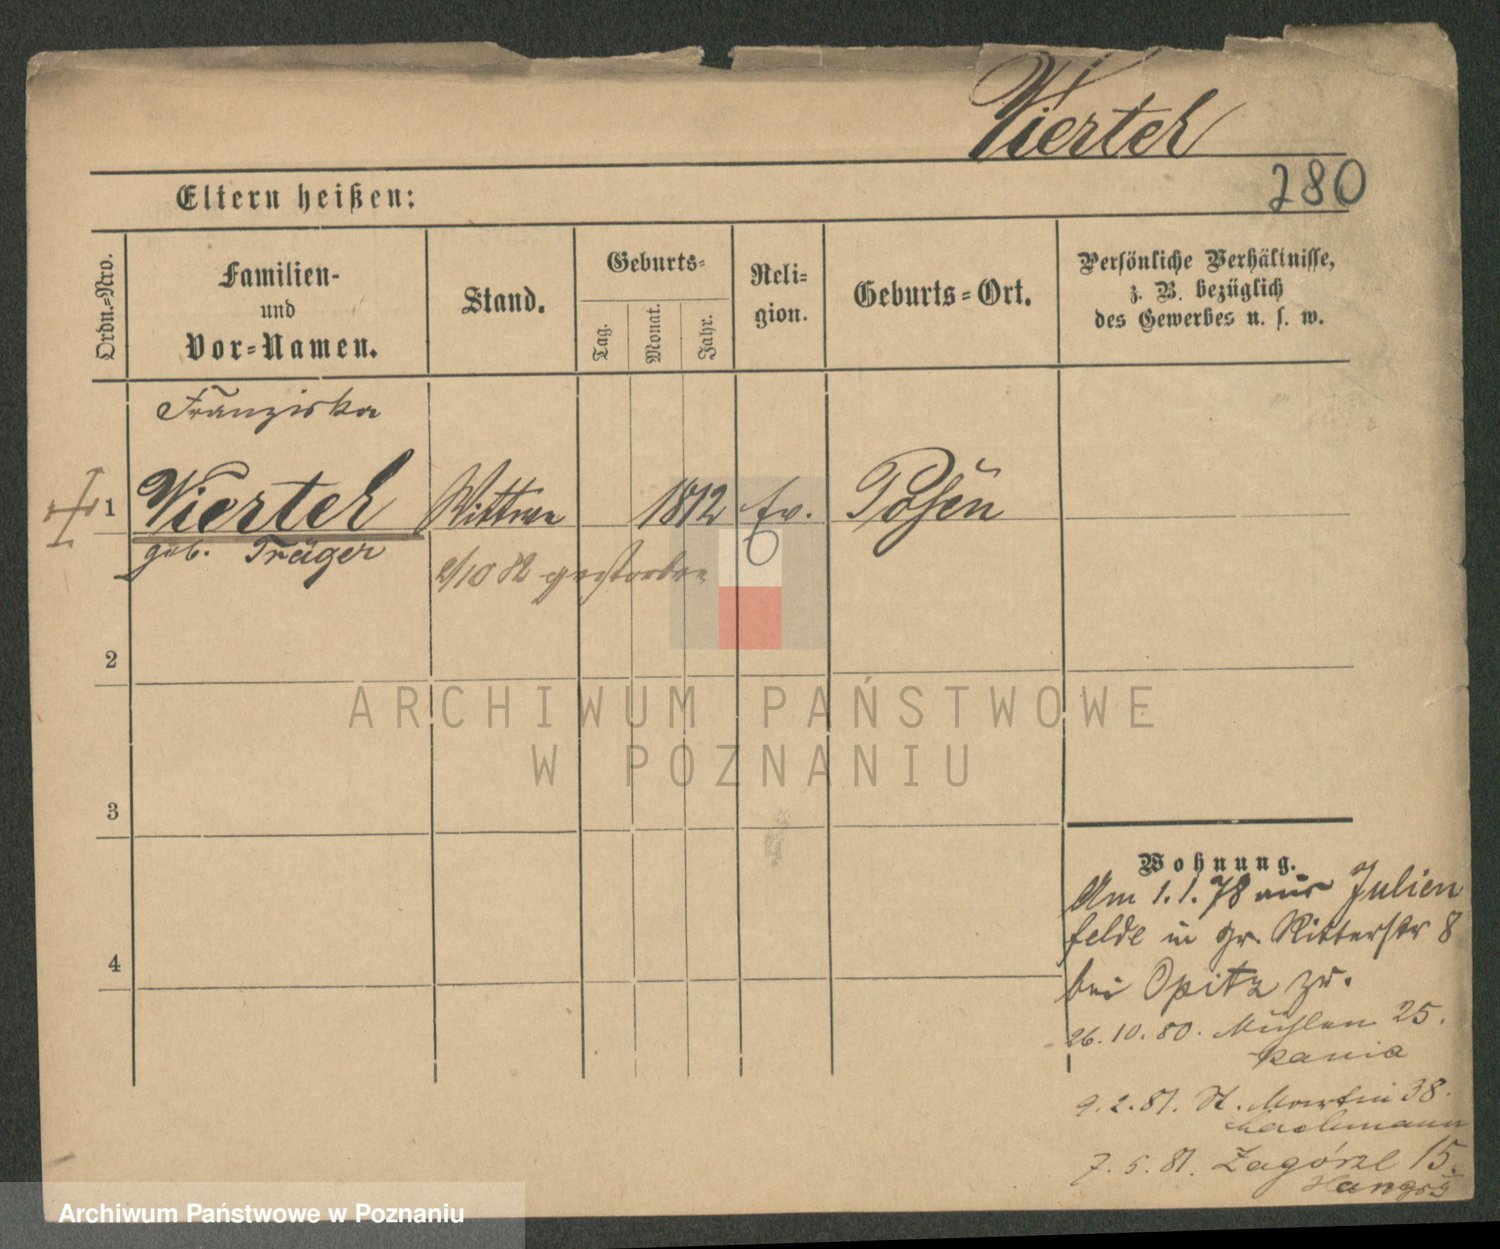 Viertel
280
Eltern heißen:
Ordn.-Nro.
Familien-
und
Vor-Namen.
Stand.
Geburts-
Tag.
Monat.
Jahr.
Reli-
gion.
Geburts-Ort.
Persönliche Verhältnisse,
z. B. bezüglich
des Gewerbes u. s. w.
Franziska
1 Viertel Wittwe 1812 Ev. Posen
geb. Träger
2/10 82 gestorben
2
ARCHIWUM PAŃSTWOWE
W POZNANIU
3
Wohnung.
Am 1.1.78 aus Julien
felde in gr. Ritterstr 8
bei Opitz zu.
26.10.80. Mühlen 25.
Kania
9.2.81. St. Martin 38.
Lachmann
7.5.81. Zagórze 15.
4
Archiwum Państwowe w Poznaniu